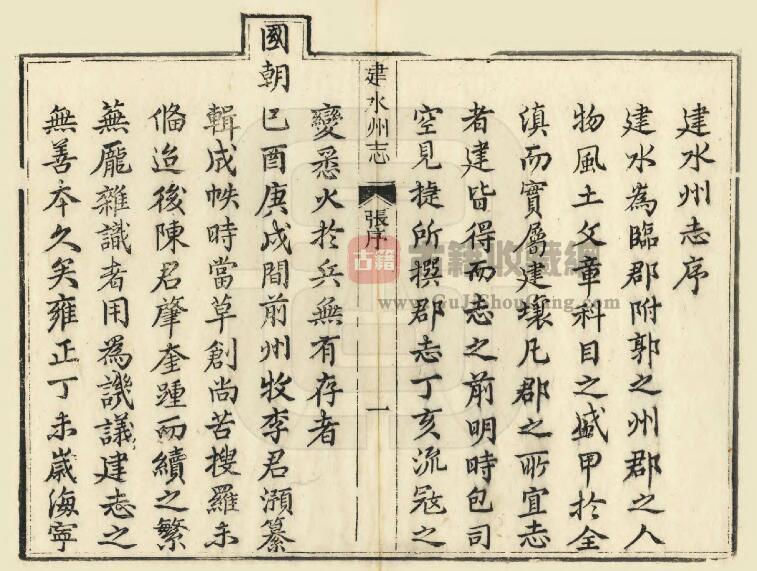 建水州志序
建水為臨郡附郭之州郡之人
物風土文章科目之盛甲於全
滇而實屬建壤凡郡之所宜志
者建皆得而志之前明時包司
空見捷所撰郡志丁亥流冦之
建水州志
張序
一
變悉火於兵無有存者
國朝己酉庚戌間前州牧李君灝纂
輯成帙時當草創尚苦搜羅未
俻迨後陳君肇奎踵而續之繁
蕪龎雜識者用為譏議建志之
無善本久矣雍正丁未嵗海寧
古籍
古籍收藏網
www.GuJiShouCang.com